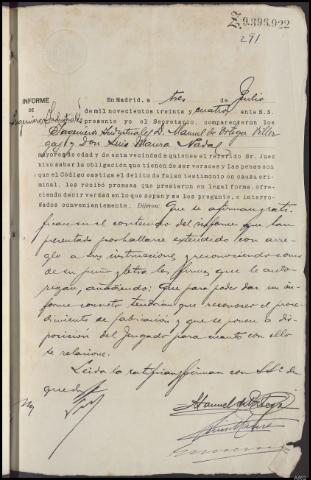 Z.9.396.922
291
INFORME
DE
Ingenieros Industriales
En Madrid, a tres de Julio
de mil novecientos treinta y cuatro ante S.S.
presente yo el Secretario, comparecieron los
Ingenieros Industriales D. Manuel de Ortega
y Don Luis Maura Nadal
mayores de edad y de esta vecindad a quienes el referido Sr Juez
hizo saber la obligación que tienen de ser veraces y las penas con
que el Código castiga el delito de falso testimonio en causa crimi-
nal, les recibó promesa que prestaron en legal forma, ofre-
ciendo decir verdad en lo que sepan y les pregunte, e interro-
gados convenientemente. Dijeron: Que se afirman y rati-
fican en el contenido del informe que han
presentado por hallarse extendido con arre-
glo a sus instrucciones, y reconociendo como
de su puño y letra las firmas que le auto-
rizan, añadiendo: Que para poder dar un in-
forme concreto tendrían que reconocer el proce-
dimiento de fabricación y que se ponen a dis-
posición del Juzgado para cuanto con ello
se relacione.
Leida la ratifican y firman con S.Sª de
que doy fe
Manuel de Ortega
Luis Maura